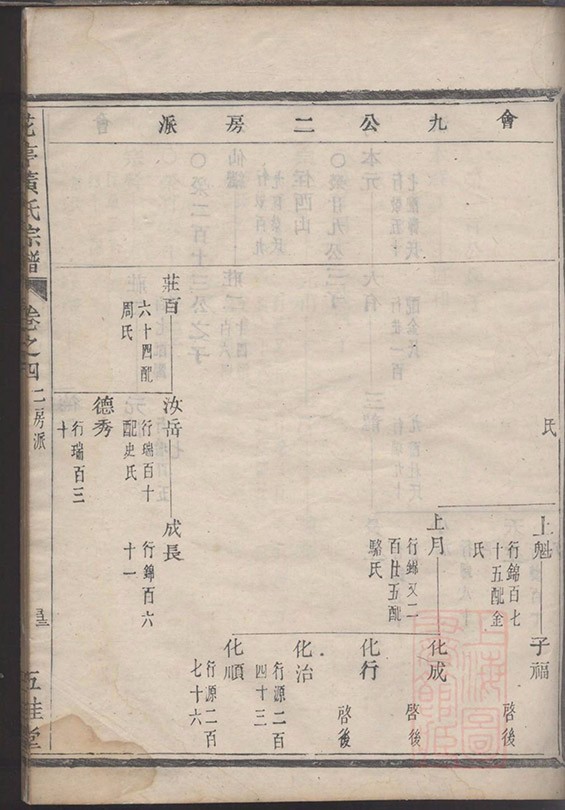 會九公二房派
氏
上魁
行錦百七
十五配金
氏
子福
啓後
上月
行錦又二
百廿五配
駱氏
化成
啓後
化行
啓後
化治
行源二百
四十三
化順
行源二百
七十六
莊百
六十四配
周氏
汝岳
行瑞百十
配史氏
成長
行錦百六
十一
德秀
行瑞百三
十
花亭黃氏宗譜
卷之四
二房派
五桂堂